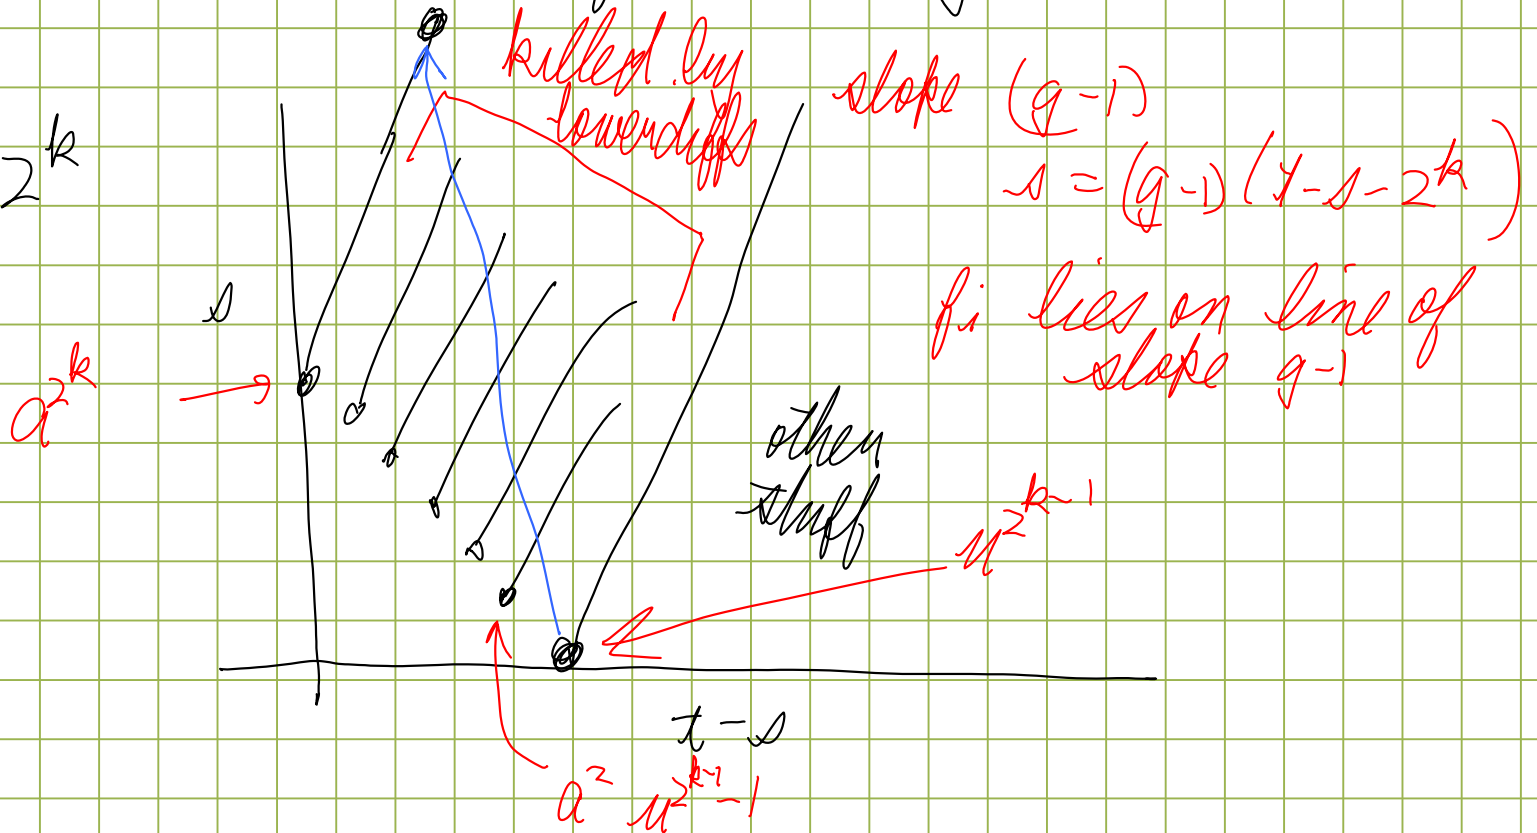 killed by
lower diffs
slope (g-1)
2^k
s = (g-1)(t-s-2^k)
s
fi lies on line of
slope g-1
a^{2^k}
other
stuff
u^{2^{k-1}}
t-s
a^2 u^{2^{k-1}-1}